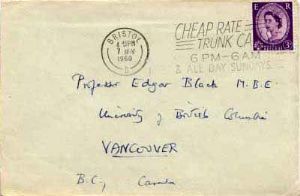 BRISTOL
1960
CHEAP RATE
TRUNK CA
6PM-6AM
& ALL DAY SUNDAYS
E R
Professor Edgar Black M.B.E.
University of British Columbia
VANCOUVER
B.C. Canada